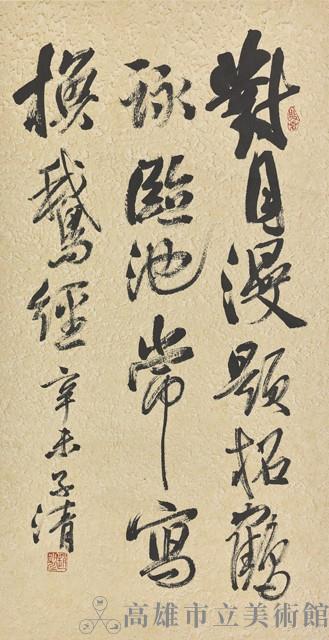 對月漫題招鶴
詠臨池常寫
換鵝經 辛未子清
高雄市立美術館